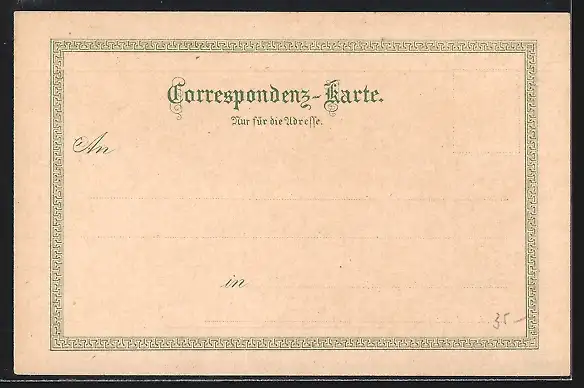 Correspondenz-Karte.
Nur für die Adresse.
An
in
35 –